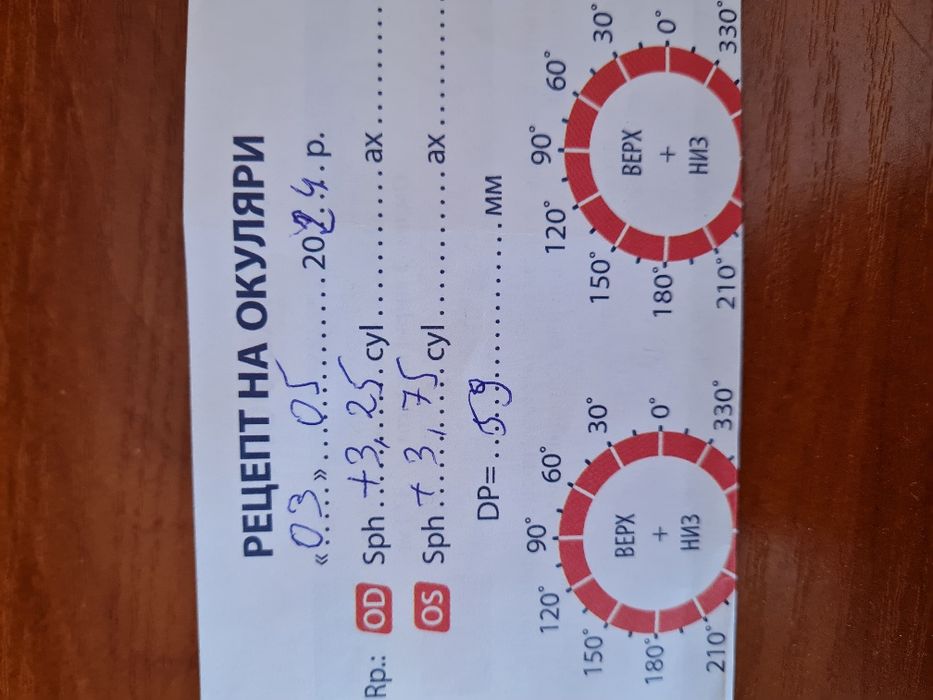 РЕЦЕПТ НА ОКУЛЯРИ
«03» 05 2024.р.
Rp.: OD Sph +3,25 cyl ax
OS Sph +3,75 cyl ax
DP= 59 мм
120° 90° 60° 120° 90° 60°
150° 30° 150° 30°
180° ВЕРХ + НИЗ 0° 180° ВЕРХ + НИЗ 0°
210° 330° 210° 330°